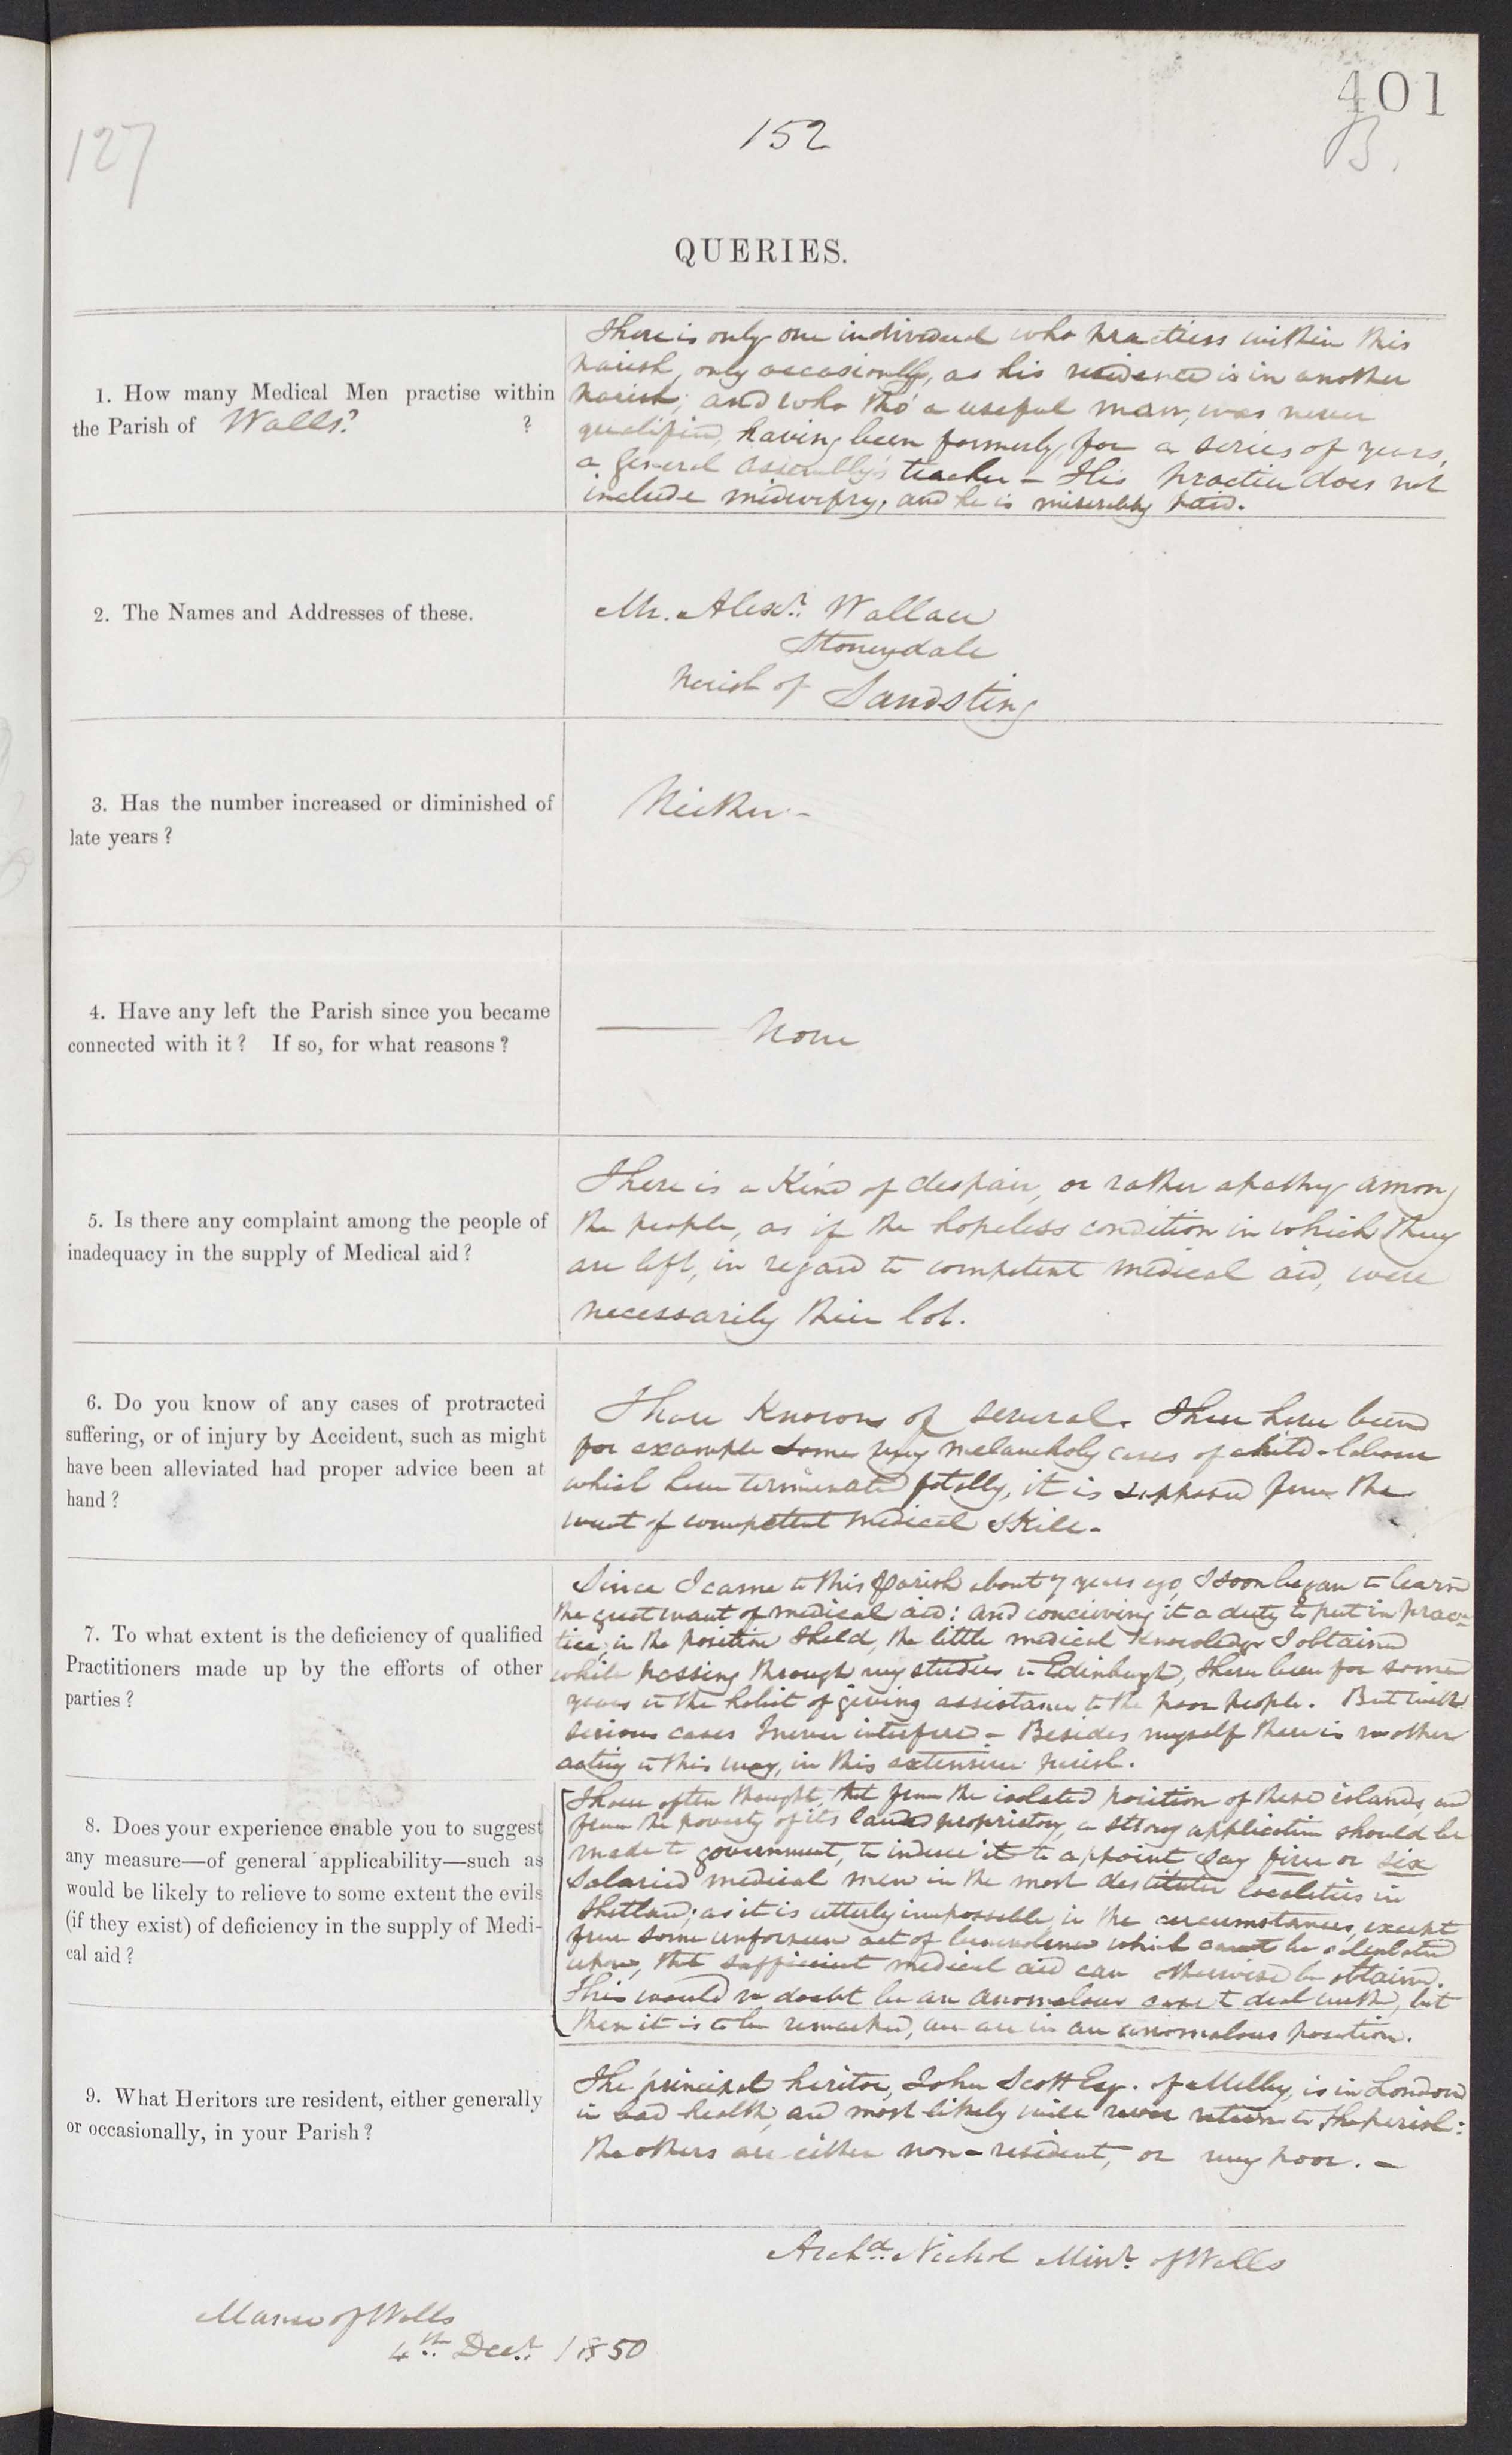 401
127
152
B.
QUERIES.
1. How many Medical Men practise within
the Parish of Walls? ?
There is only one individual who practises within this
parish, only occasionally, as his residence is in another
parish; and who tho' a useful man, was never
qualified, having been formerly for a series of years,
a general assembly's teacher – His practice does not
include midwifry, and he is miserably paid.
2. The Names and Addresses of these.
Mr. Alexr. Wallace
Stoneydale
parish of Sandsting
3. Has the number increased or diminished of
late years ?
Neither –
4. Have any left the Parish since you became
connected with it ? If so, for what reasons ?
—— None
5. Is there any complaint among the people of
inadequacy in the supply of Medical aid ?
There is a kind of despair, or rather apathy among
the people, as if the hopeless condition in which they
are left, in regard to competent medical aid, were
necessarily their lot.
6. Do you know of any cases of protracted
suffering, or of injury by Accident, such as might
have been alleviated had proper advice been at
hand ?
I have known of several. There have been
for example some very melancholy cases of child-labour
which have terminated fatally, it is supposed from the
want of competent medical skill –
7. To what extent is the deficiency of qualified
Practitioners made up by the efforts of other
parties ?
Since I came to this parish about 7 years ago, I soon began to learn
the great want of medical aid: and conceiving it a duty to put in prac-
tice in the position I held, the little medical knowledge I obtained
while passing through my studies in Edinburgh, I have been for some
years in the habit of giving assistance to the poor people. But with
serious cases I never interfere – Besides myself there is no other
acting in this way, in this extensive parish.
8. Does your experience enable you to suggest
any measure—of general applicability—such as
would be likely to relieve to some extent the evils
(if they exist) of deficiency in the supply of Medi-
cal aid ?
I have often thought, that from the isolated position of these islands, and
from the poverty of its landed proprietory, a strong application should be
made to government, to induce it to appoint say five or six
salaried medical men in the most destitute localities in
Shetland; as it is utterly impossible, in the circumstances, except
from some unforseen act of benevolence which cannot be calculated
upon, that sufficient medical aid can otherwise be obtained.
This would no doubt be an anomalous case to deal with, but
then it is to be remarked, we are in an anomalous position.
9. What Heritors are resident, either generally
or occasionally, in your Parish ?
The principal heritor, John Scott Esq. of Melby, is in London
in bad health, and most likely will never return to the parish:
the others are either non-resident, or very poor. –
Archd. Nichol Minr. of Walls
Manse of Walls
4th Decr. 1850